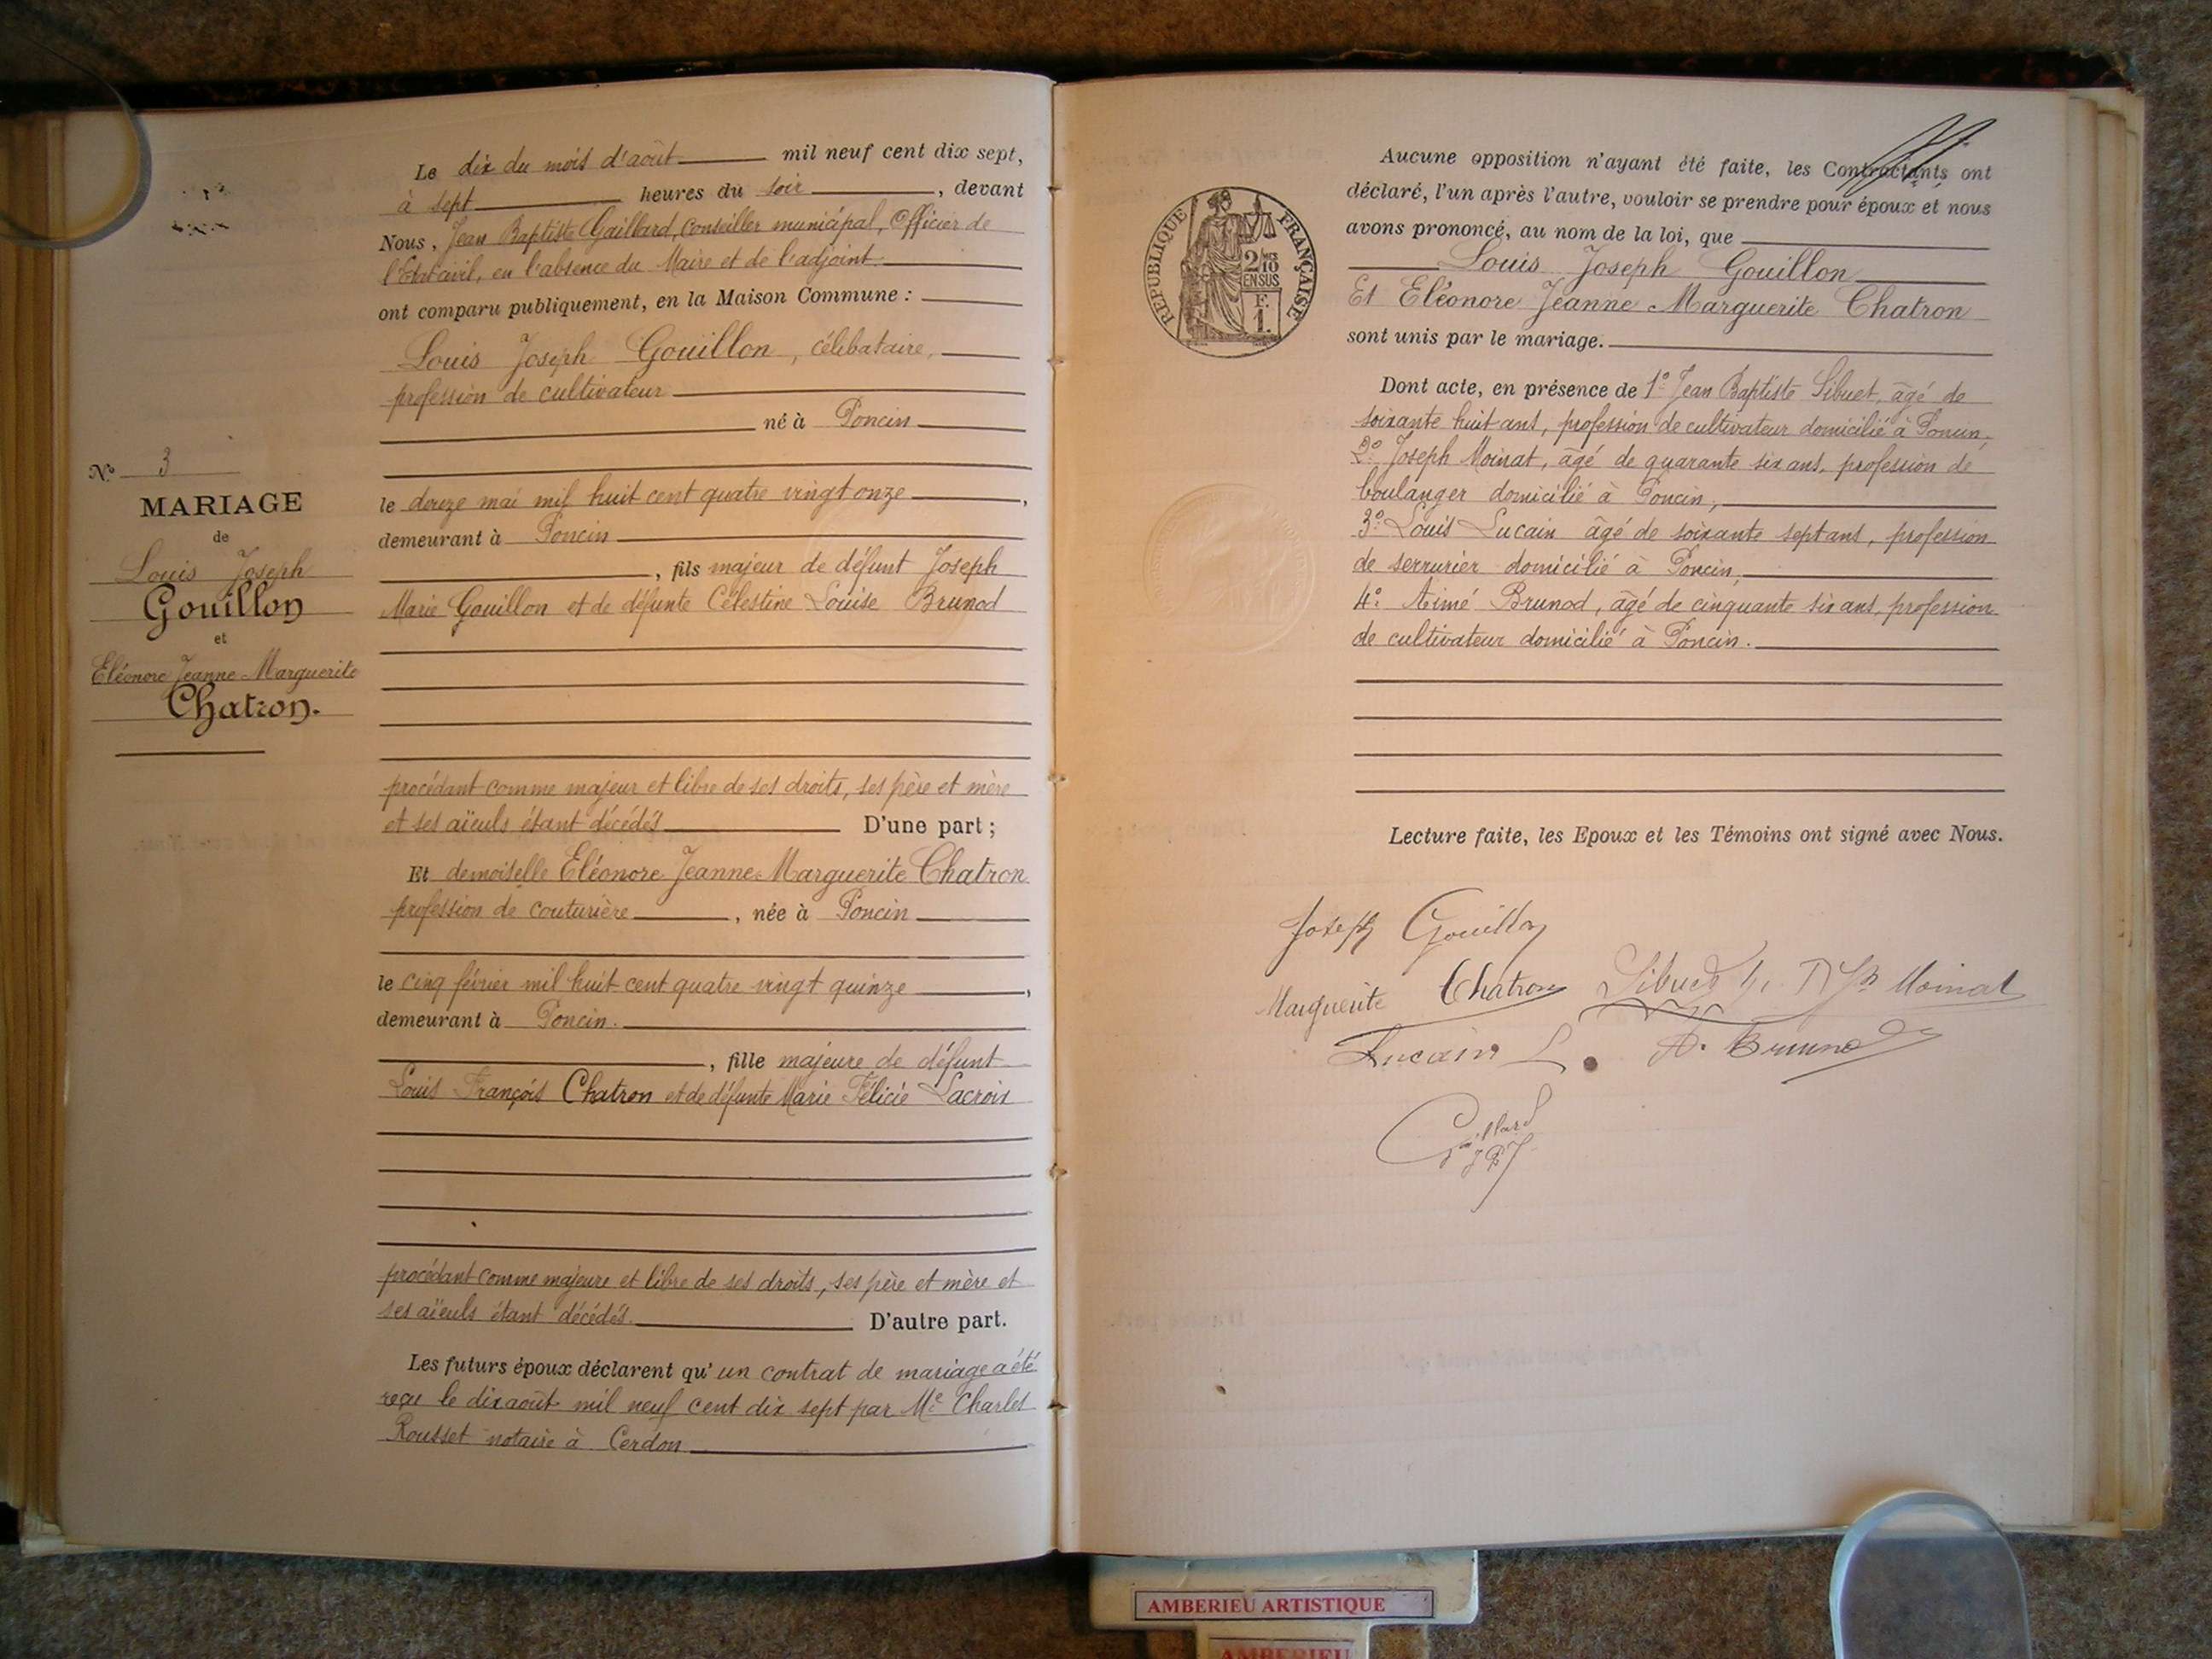 Le dix du mois d'août mil neuf cent dix sept,
à sept heures du soir, devant
Nous, Jean Baptiste Gaillard, conseiller municipal, Officier de
l'Etat civil, en l'absence du Maire et de l'adjoint.
ont comparu publiquement, en la Maison Commune :
Louis Joseph Gouillon, célibataire,
profession de cultivateur
né à Poncin
le douze mai mil huit cent quatre vingt onze,
demeurant à Poncin
, fils majeur de défunt Joseph
Marie Gouillon et de défunte Célestine Louise Brunod
procédant comme majeur et libre de ses droits, ses père et mère
et ses aïeuls étant décédés D'une part ;
Et demoiselle Eléonore Jeanne Marguerite Chatron
profession de couturière, née à Poncin
le cinq février mil huit cent quatre vingt quinze,
demeurant à Poncin.
, fille majeure de défunt
Louis François Chatron et de défunte Marie Félicie Lacroix
procédant comme majeure et libre de ses droits, ses père et mère et
ses aïeuls étant décédés. D'autre part.
Les futurs époux déclarent qu'un contrat de mariage a été
reçu le dix août mil neuf cent dix sept par Me Charles
Rousset notaire à Cerdon
N° 3
MARIAGE
de
Louis Joseph
Gouillon
et
Eléonore Jeanne Marguerite
Chatron.
RÉPUBLIQUE FRANÇAISE
2/10
EN SUS
F.
1.
Aucune opposition n'ayant été faite, les Contractants ont
déclaré, l'un après l'autre, vouloir se prendre pour époux et nous
avons prononcé, au nom de la loi, que
Louis Joseph Gouillon
Et Eléonore Jeanne Marguerite Chatron
sont unis par le mariage.
Dont acte, en présence de 1° Jean Baptiste Sibuet, âgé de
soixante huit ans, profession de cultivateur domicilié à Poncin,
2° Joseph Moinat, âgé de quarante six ans, profession de
boulanger domicilié à Poncin,
3° Louis Lucain âgé de soixante sept ans, profession
de serrurier domicilié à Poncin,
4° Aimé Brunod, âgé de cinquante six ans, profession
de cultivateur domicilié à Poncin.
Lecture faite, les Epoux et les Témoins ont signé avec Nous.
Joseph Gouillon
Marguerite Chatron Sibuet Moinat
Lucain L. A. Brunod
Gaillard
AMBERIEU ARTISTIQUE
AMBERIEU